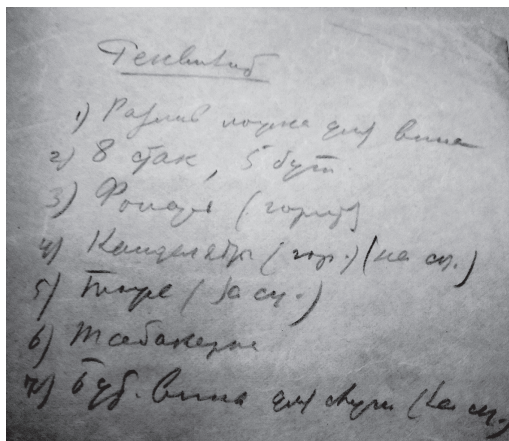 Реквизит
1) Разлив. ложка для вина
2) 8 стак, 5 бут.
3) Фонарь (горит)
4) Канделябр (гор.) (на сц.)
5) Бюро (на сц.)
6) Табакерка
7) Бут. вина для (на сц.)